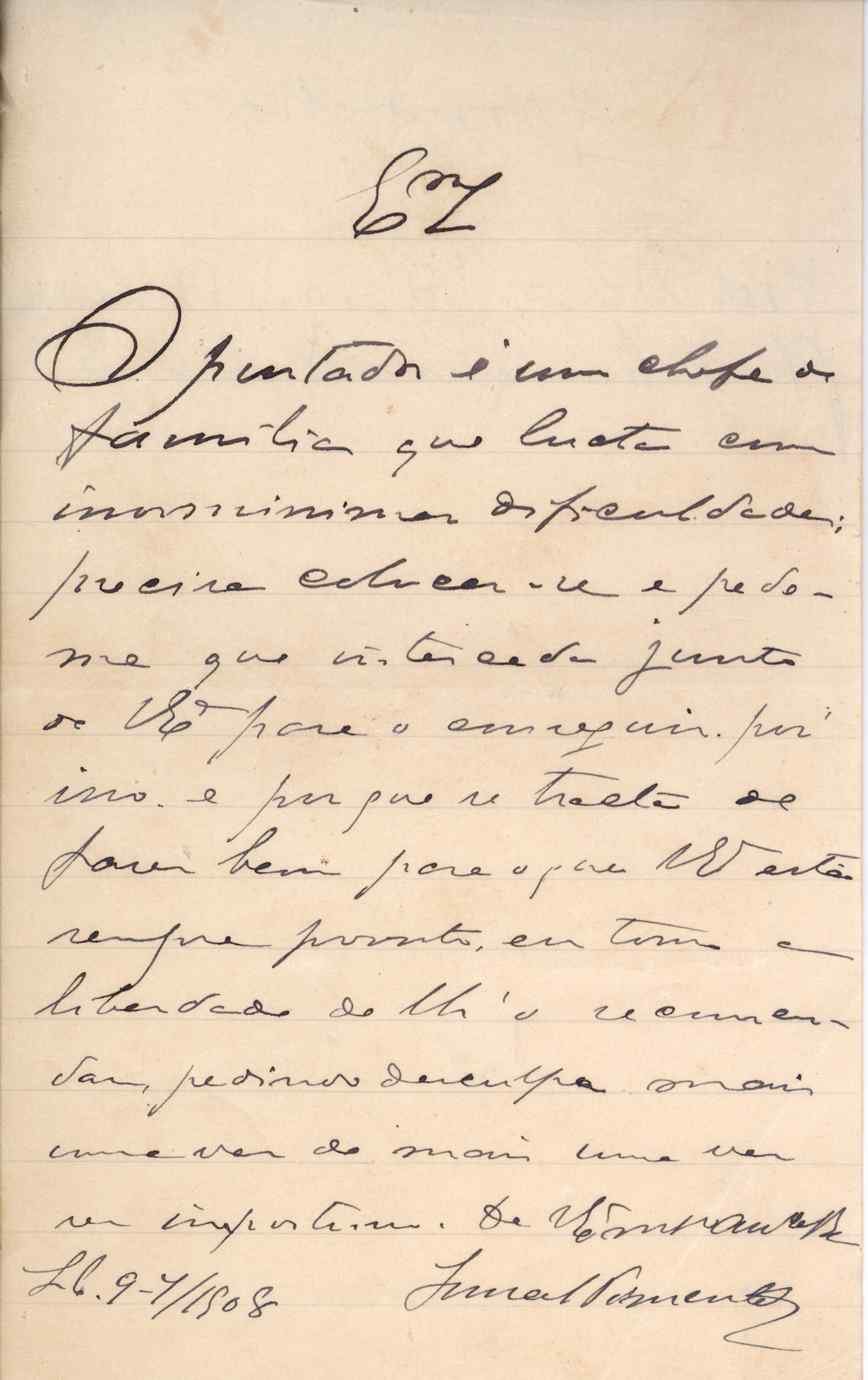 O portador é um chefe de
familia que lucta com
dificuldades;
precisa colocar-se e pede-
me que interceda junto
de VExª para o conseguir. por
isso. e porque se tracta de
fazer bem para o que VExª está
sempre prompto, eu tomo a
liberdade de lh'o recommen-
dar, pedindo desculpa mais
uma vez de mais uma vez
ser importuno. De VExª
Lx. 9-7/1908